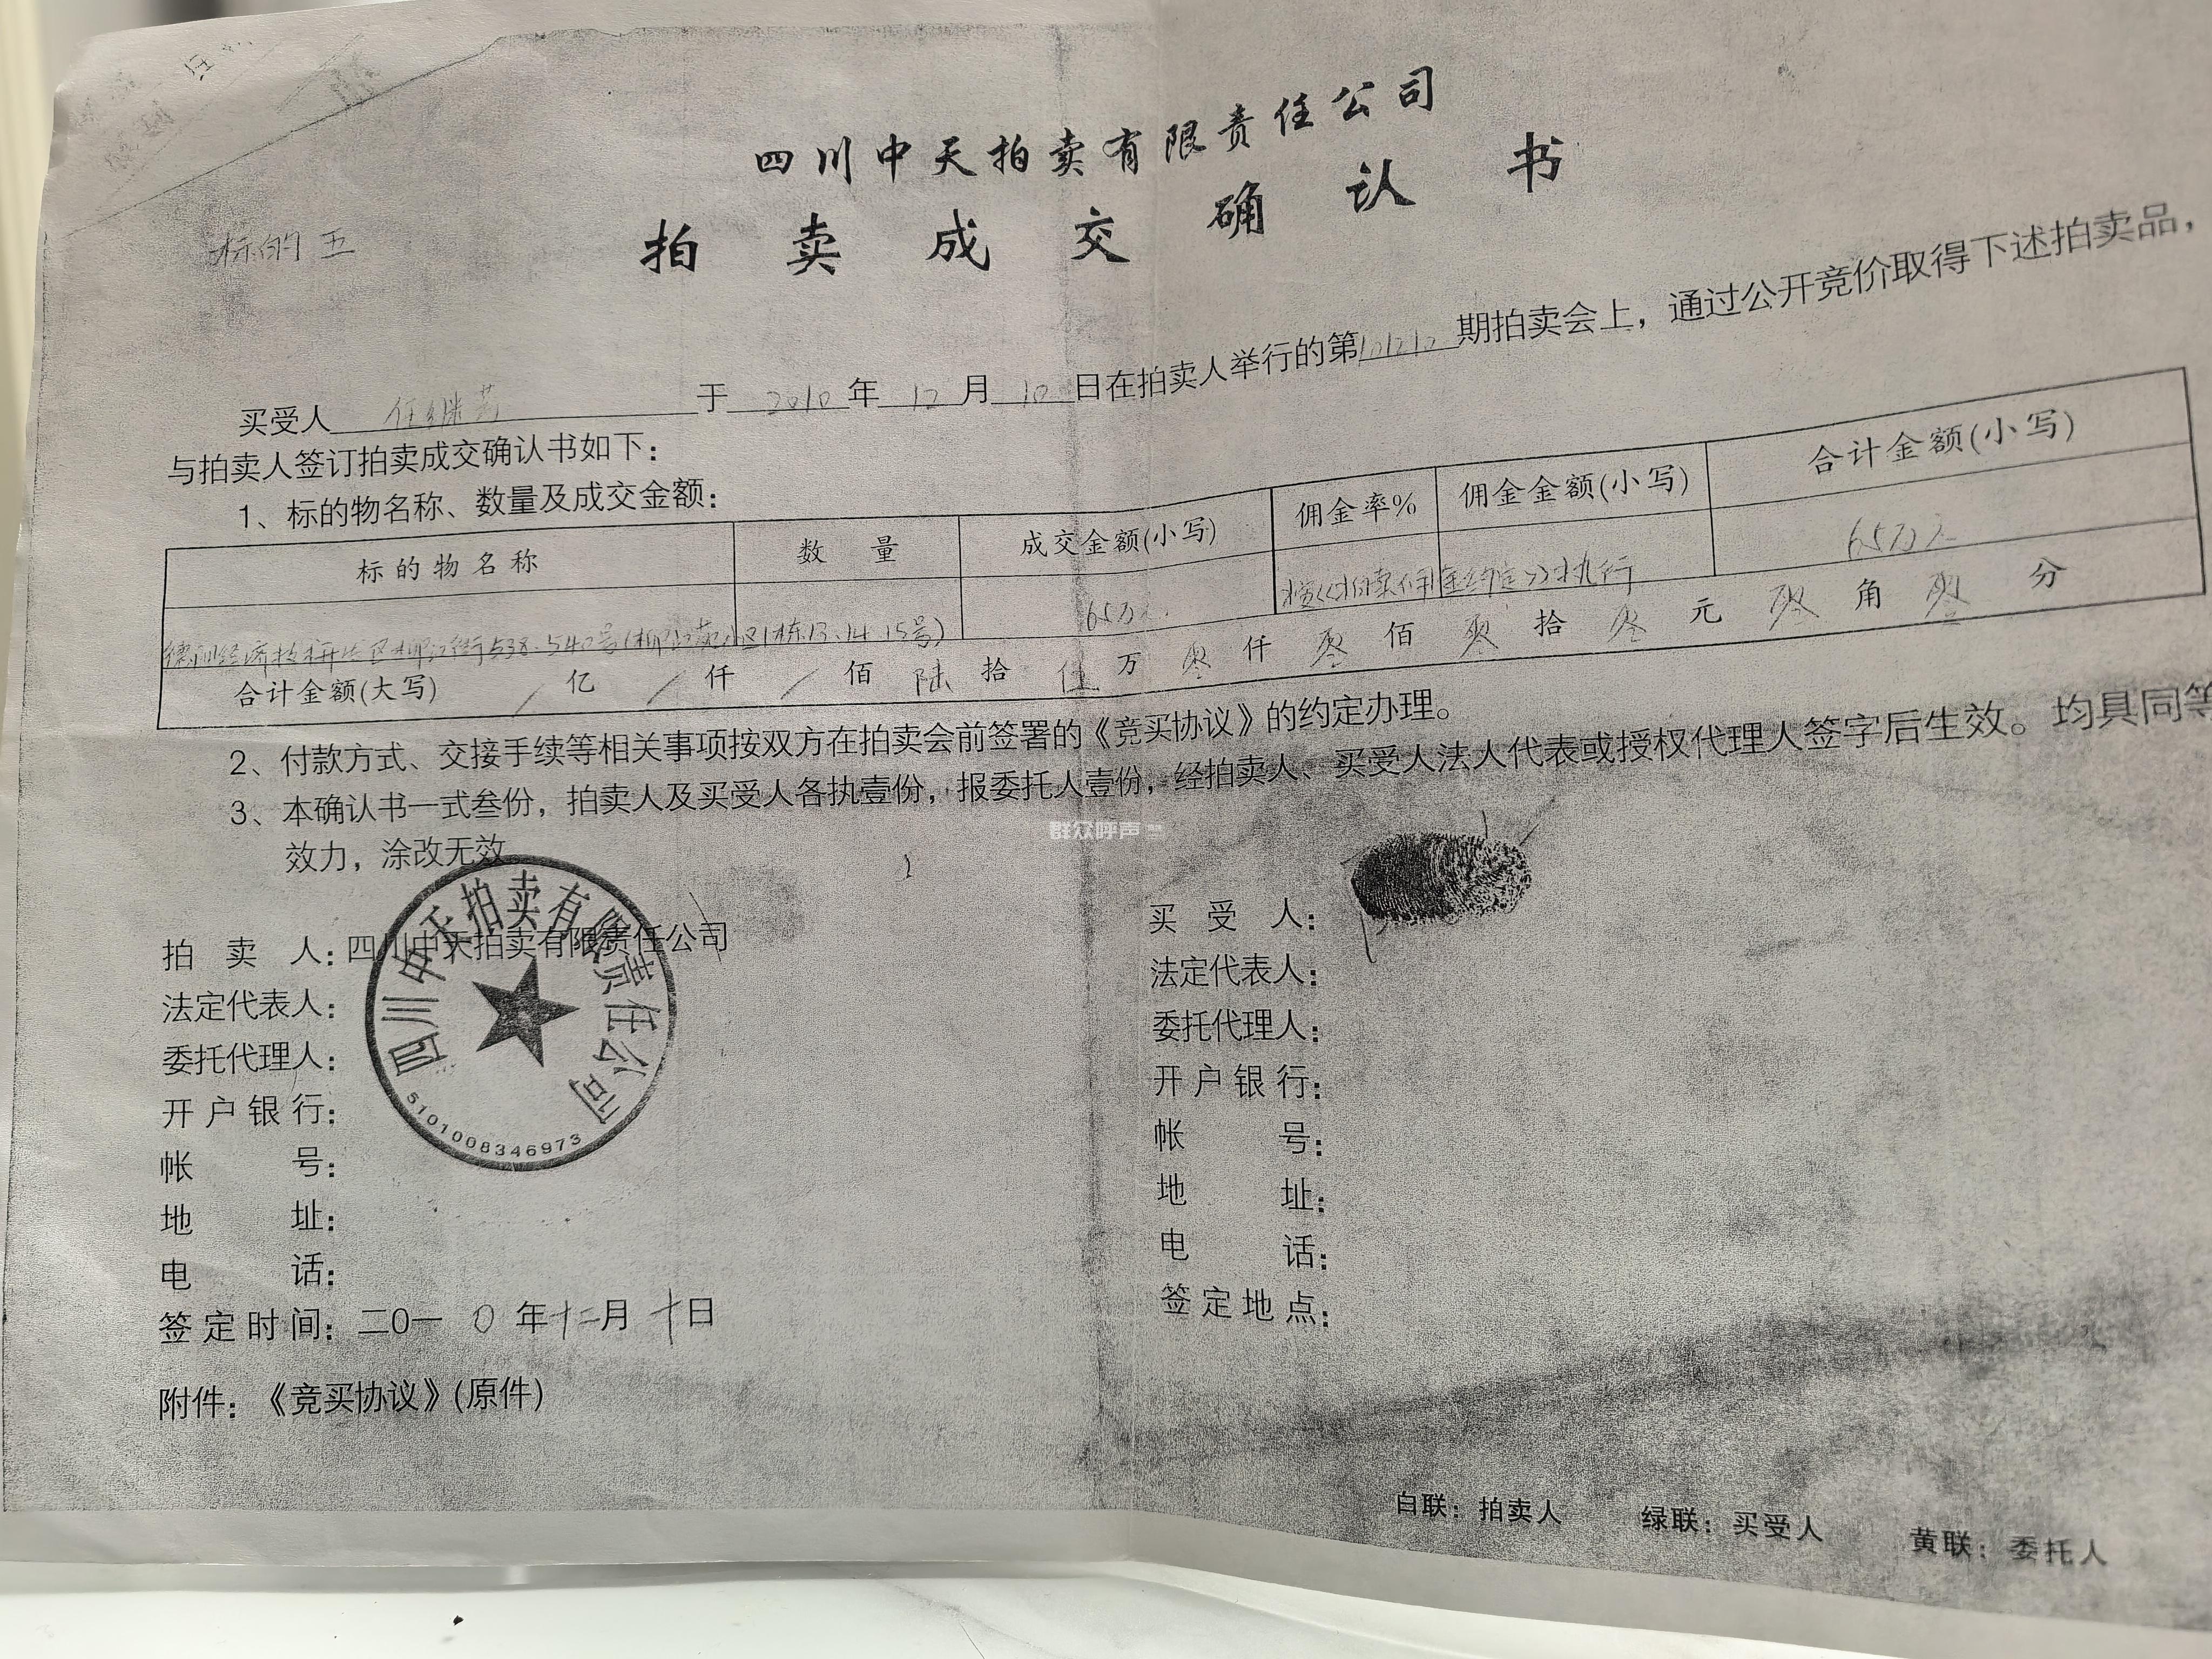 四川中天拍卖有限责任公司
拍卖成交确认书
标的五
买受人 任继芳 于 2010 年 12 月 10 日在拍卖人举行的第 101210 期拍卖会上，通过公开竞价取得下述拍卖品，
与拍卖人签订拍卖成交确认书如下：
1、标的物名称、数量及成交金额：
标的物名称 数量 成交金额(小写) 佣金率% 佣金金额(小写) 合计金额(小写)
德阳经济技术开发区柳江街538-540号(柳江苑小区1栋13.14.15号) 65万元. 按《拍卖佣金约定》执行 65万元
合计金额(大写) / 亿 / 仟 / 佰 陆 拾 伍 万 零 仟 零 佰 零 拾 零 元 零 角 零 分
2、付款方式、交接手续等相关事项按双方在拍卖会前签署的《竞买协议》的约定办理。
3、本确认书一式叁份，拍卖人及买受人各执壹份，报委托人壹份，经拍卖人、买受人法人代表或授权代理人签字后生效。均具同等
效力，涂改无效
群众呼声
拍卖人：四川中天拍卖有限责任公司
法定代表人：
委托代理人：
开户银行：
帐号：
地址：
电话：
签定时间：二0一0年十二月十日
附件：《竞买协议》(原件)
四川中天拍卖有限责任公司
5101008346973
买受人：
法定代表人：
委托代理人：
开户银行：
帐号：
地址：
电话：
签定地点：
白联：拍卖人 绿联：买受人 黄联：委托人